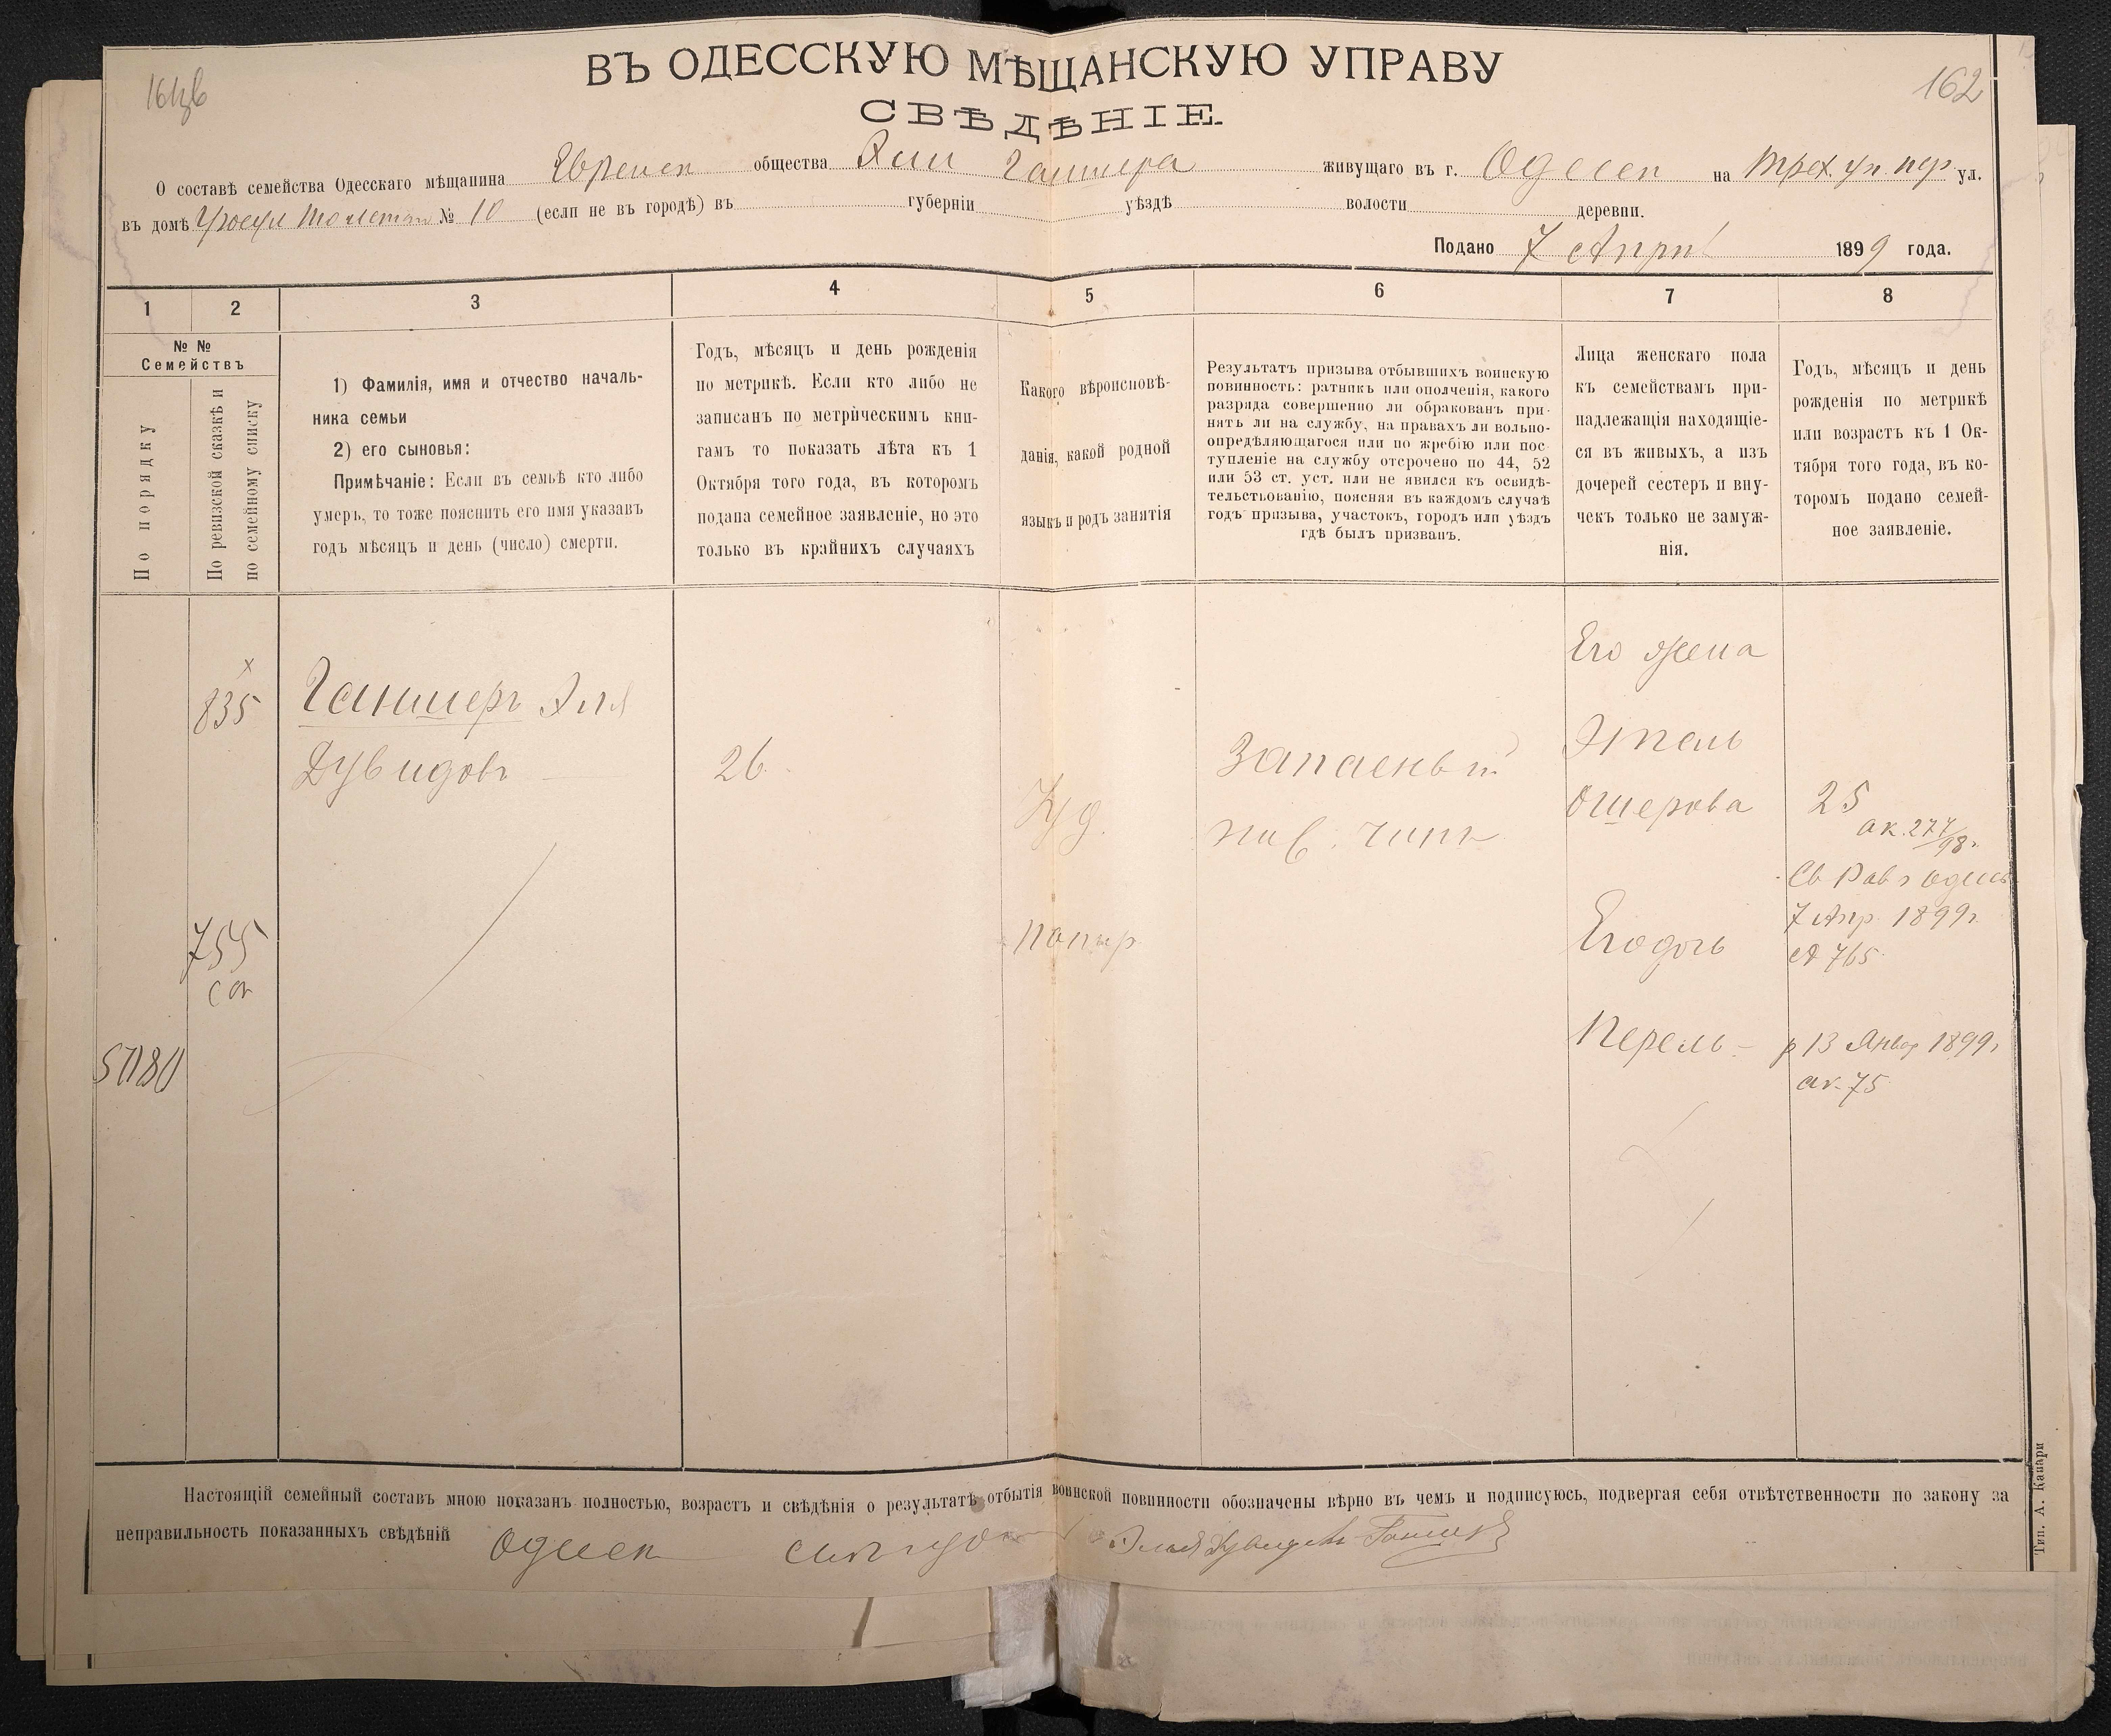 ВЪ ОДЕССКУЮ МѢЩАНСКУЮ УПРАВУ
162
СВѢДѢНІЕ
О составѣ семейства Одесскаго мѣщанина Еврейск общества Эли Ганшера живущаго въ г. Одессѣ на ул.
въ домѣ № 10 (если не въ городѣ) въ губерніи уѣздѣ волости деревни.
Подано 7 Апрѣл 1899 года.
1 2 3 4 5 6 7 8
№ №
Семействъ
По порядку
По ревизской сказкѣ и
по семейному списку
1) Фамилія, имя и отчество началь-
ника семьи
2) его сыновья:
Примѣчаніе: Если въ семьѣ кто либо
умеръ, то тоже пояснить его имя указавъ
годъ мѣсяцъ и день (число) смерти.
Годъ, мѣсяцъ и день рожденія
по метрикѣ. Если кто либо не
записанъ по метрическимъ кни-
гамъ то показать лѣта къ 1
Октября того года, въ которомъ
подана семейное заявленіе, но это
только въ крайнихъ случаяхъ
Какого вѣроисповѣ-
данія, какой родной
языкъ и родъ занятія
Результатъ призыва отбывшихъ воинскую
повинность: ратникъ или ополченія, какого
разряда совершенно ли обракованъ при-
нятъ ли на службу, на правахъ ли вольно-
опредѣляющагося или по жребію или пос-
тупленіе на службу отсрочено по 44, 52
или 53 ст. уст. или не явился къ освидѣ-
тельствованію, поясняя въ каждомъ случаѣ
годъ призыва, участокъ, городъ или уѣздъ
гдѣ былъ призванъ.
Лица женскаго пола
къ семействамъ при-
надлежащія находящіе-
ся въ живыхъ, а изъ
дочерей сестеръ и вну-
чекъ только не замуж-
нія.
Годъ, мѣсяцъ и день
рожденія по метрикѣ
или возрастъ къ 1 Ок-
тября того года, въ ко-
торомъ подано семей-
ное заявленіе.
х
835
Ганшеръ Эля
Дувидовъ
26
Іуд.
Запасный
ниж. чинъ
Его жена
Этель
Ошерова
25
ак. 277/98 г.
7 Апр. 1899 г.
№ 765
755
Его дочь
Перель
р 13 Январ 1899 г
ак. 75
57180
Настоящій семейный составъ мною показанъ полностью, возрастъ и свѣдѣнія о результатѣ отбытія воинской повинности обозначены вѣрно въ чемъ и подписуюсь, подвергая себя отвѣтственности по закону за
неправильность показанныхъ свѣдѣній
Тип. А. Канари